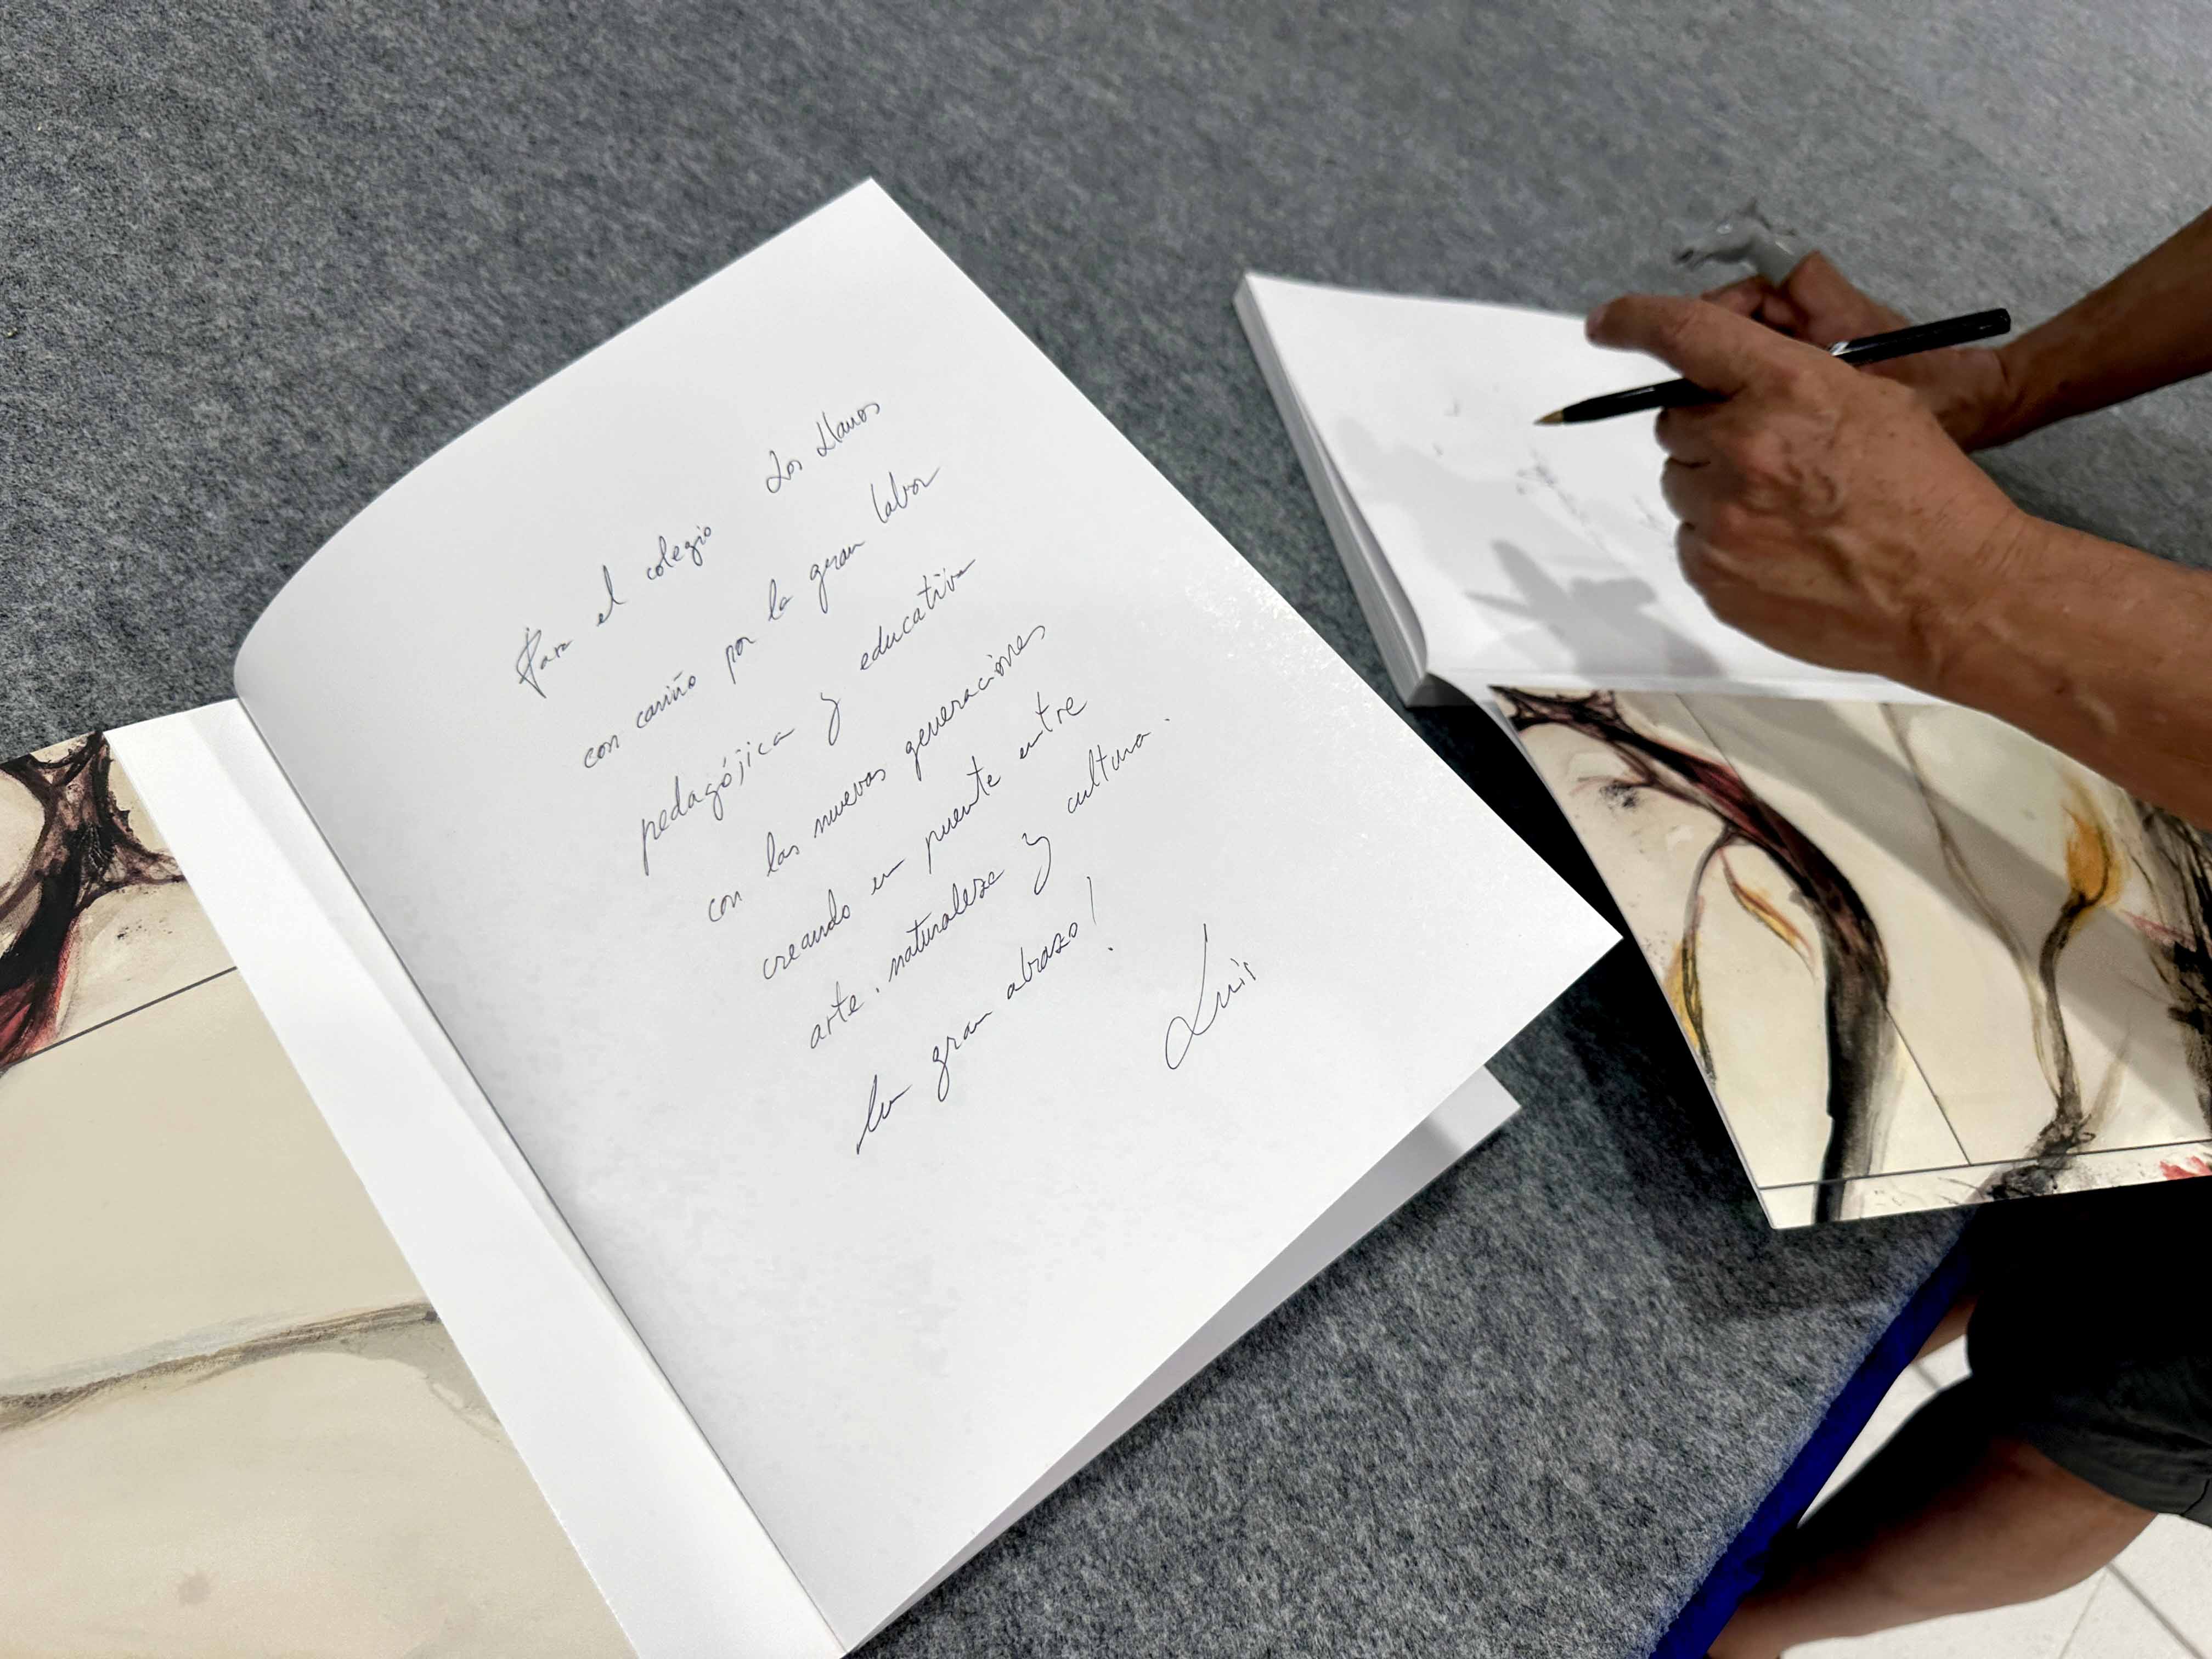 Para el colegio Los Llanos
con cariño por la gran labor
pedagójica y educativa
con las nuevas generaciones
creando un puente entre
arte. naturaleza y cultura.
Un gran abrazo!
Luis